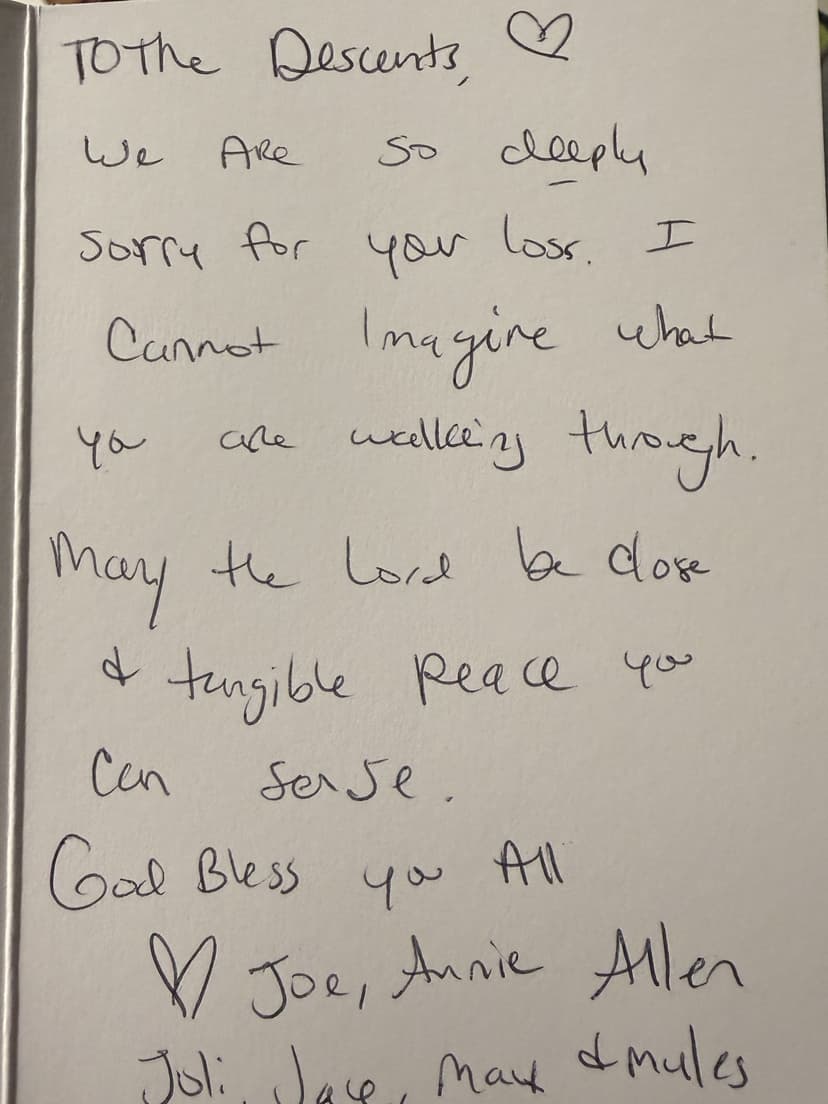 TO The Descents, ♡
We Are so deeply
sorry for your loss. I
Cannot Imagine what
you are walking through.
May the Lord be close
& tangible peace you
can sense.
God Bless you All
♡ Joe, Annie Allen
Juli, Jace, Max & mules